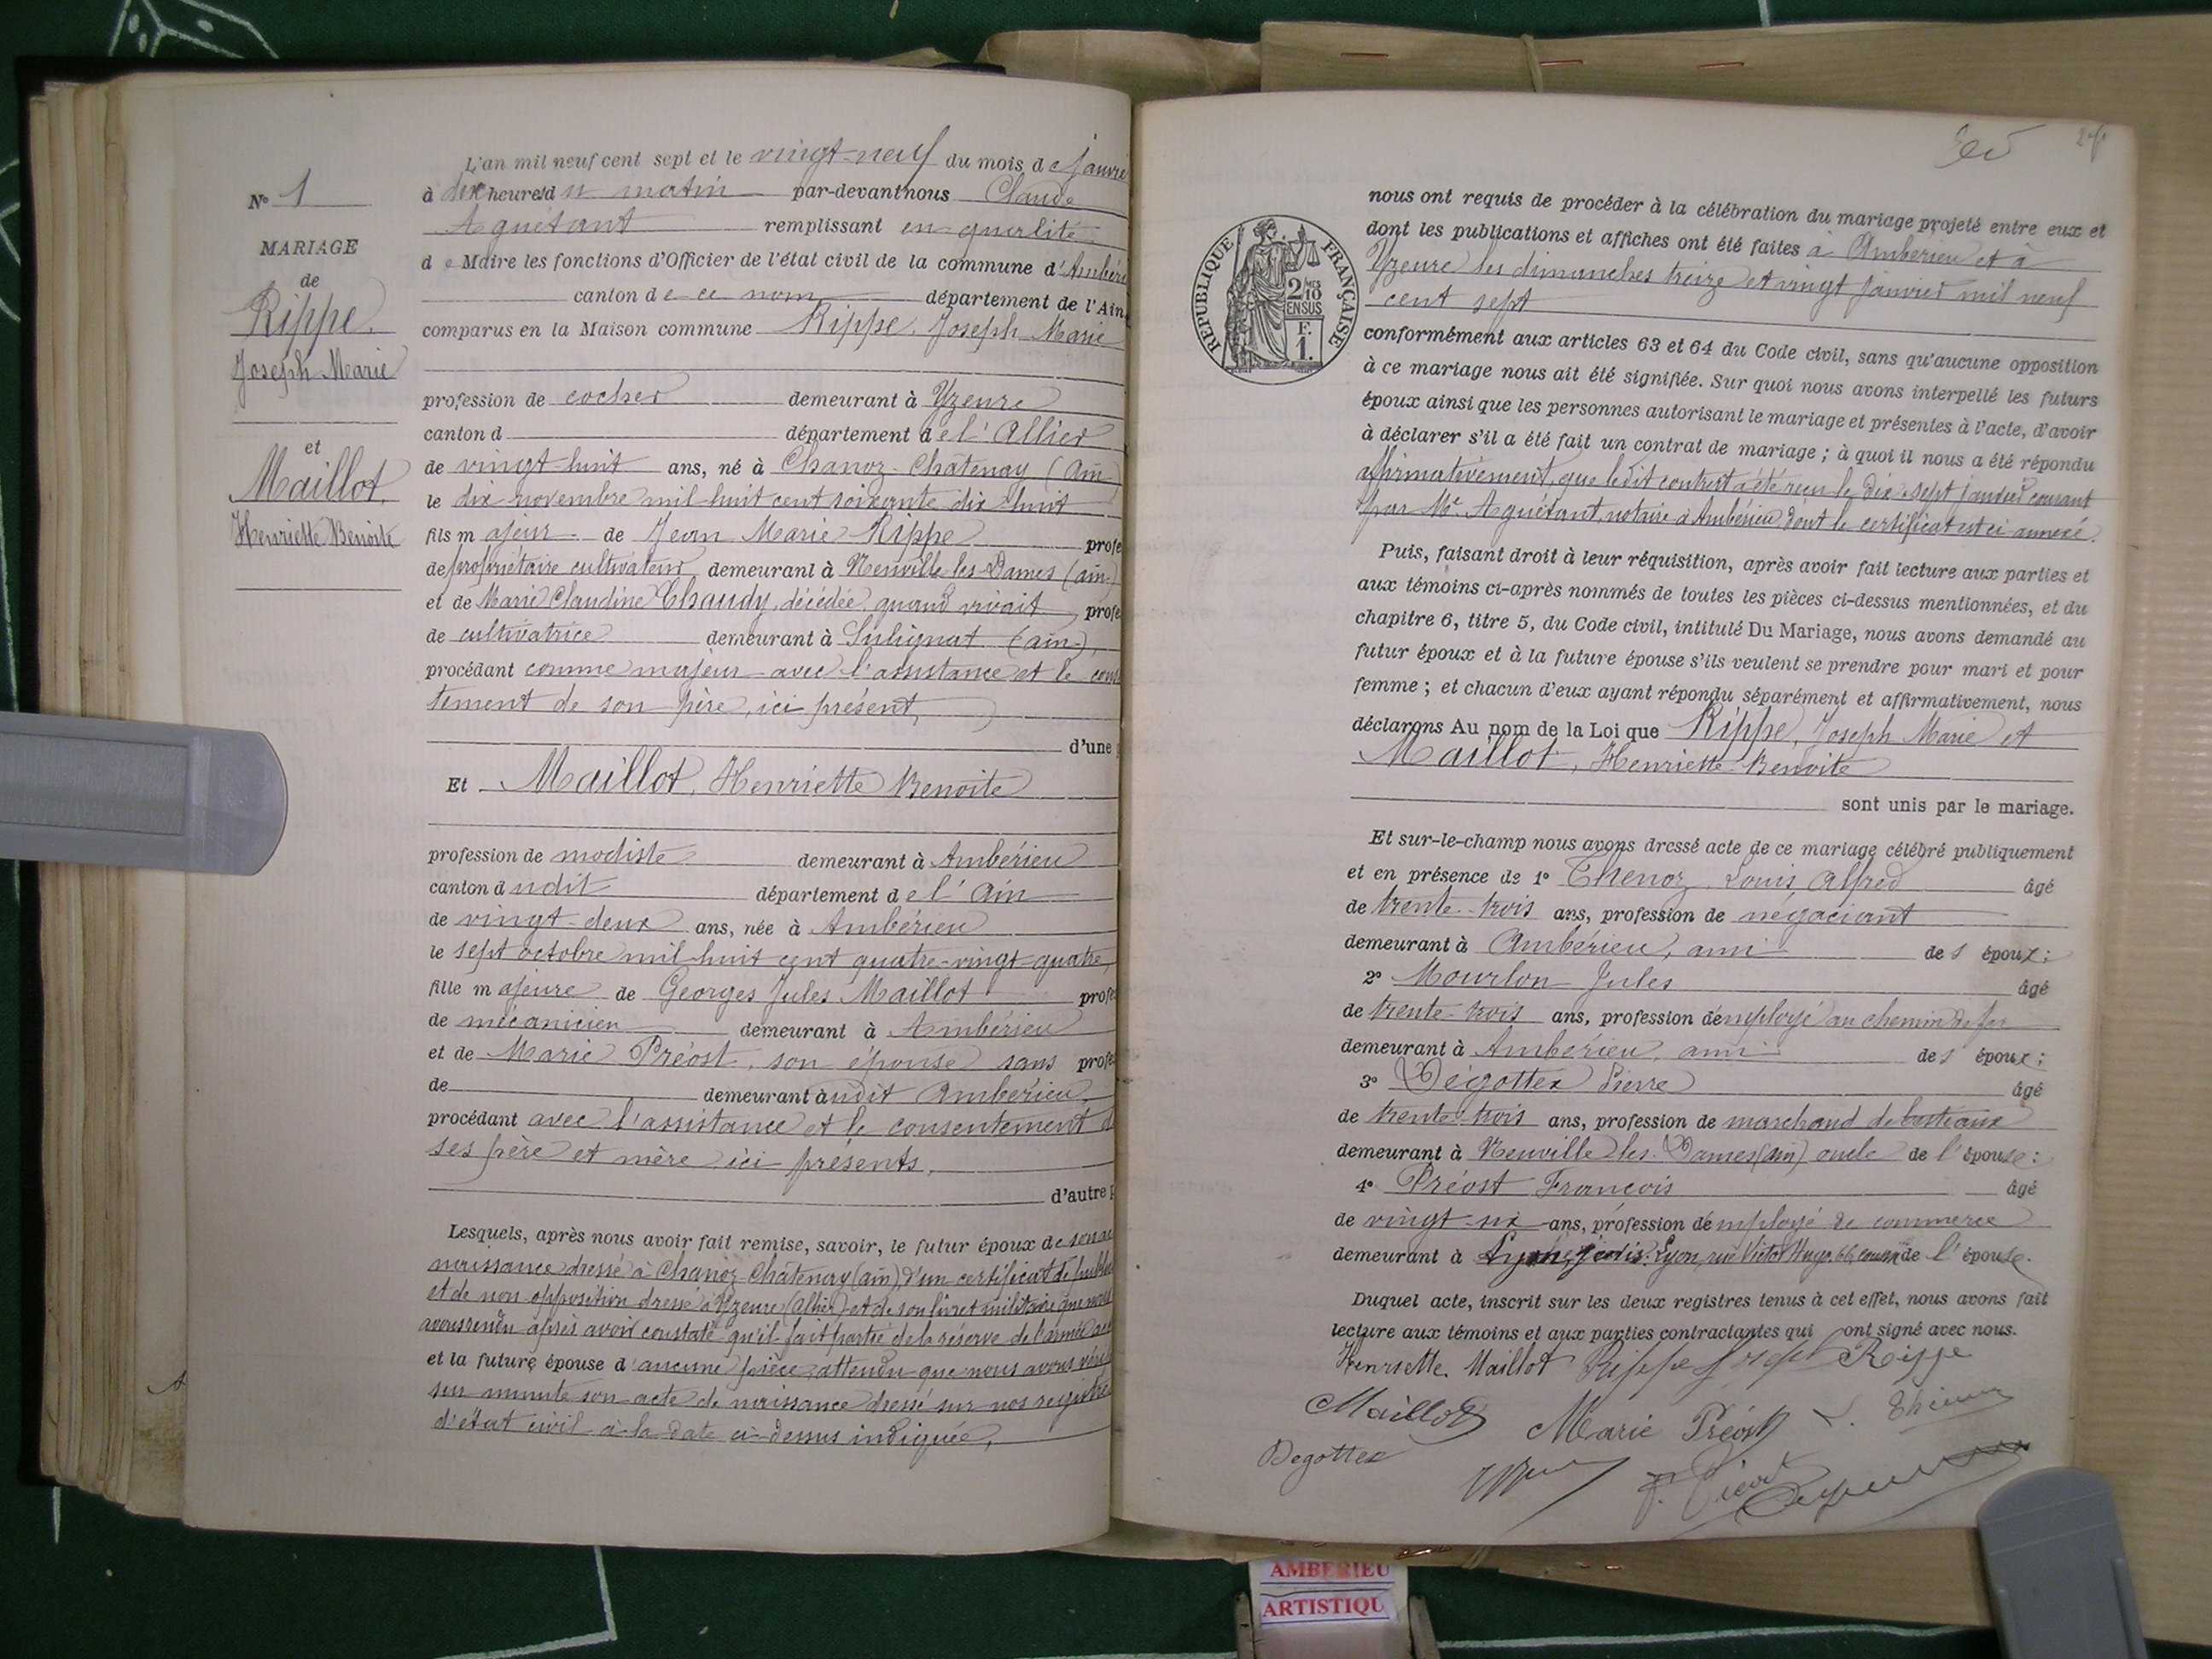 N° 1
MARIAGE
de
Rippe,
Joseph Marie
et
Maillot,
Henriette Benoite
L'an mil neuf cent sept et le vingt-neuf du mois de janvie
à dix heures du matin par-devant nous Claude
Aguétant remplissant en qualité
de Maire les fonctions d'Officier de l'état civil de la commune d'Ambéri
canton de ce nom département de l'Ain
comparus en la Maison commune Rippe, Joseph Marie
profession de cocher demeurant à Yzeure
canton d département de l'Allier
de vingt-huit ans, né à Chanoz-Châtenay (Ain)
le dix novembre mil huit cent soixante dix huit
fils majeur de Jean Marie Rippe profe
de propriétaire cultivateur demeurant à Neuville-les-Dames (Ain)
et de Marie Claudine Chaudy, décédée, quand vivait profe
de cultivatrice demeurant à Sulignat (Ain),
procédant comme majeur avec l'assistance et le cons
tement de son père, ici présent,
d'une p
Et Maillot, Henriette Benoite
profession de modiste demeurant à Ambérieu
canton dudit département de l'Ain
de vingt-deux ans, née à Ambérieu
le sept octobre mil huit cent quatre-vingt-quatre,
fille majeure de Georges Jules Maillot profe
de mécanicien demeurant à Ambérieu
et de Marie Préost, son épouse sans profe
de demeurant àudit Ambérieu,
procédant avec l'assistance et le consentement d
ses père et mère ici présents,
d'autre p
Lesquels, après nous avoir fait remise, savoir, le futur époux de son ac
naissance dressé à Chanoz-Châtenay (Ain), d'un certificat de public
et de non opposition dressé à Yzeure (Allier) et de son livret militaire que nous
avons rendu après avoir constaté qu'il fait partie de la réserve de l'armée
et la future épouse d'aucune pièce, attendu que nous avons véri
sur minute son acte de naissance dressé sur nos registre
d'état civil à la date ci-dessus indiquée,
RÉPUBLIQUE FRANÇAISE
2/10 EN SUS
F. 1.
nous ont requis de procéder à la célébration du mariage projeté entre eux et
dont les publications et affiches ont été faites à Ambérieu et à
Yzeure les dimanches treize et vingt janvier mil neuf
cent sept
conformément aux articles 63 et 64 du Code civil, sans qu'aucune opposition
à ce mariage nous ait été signifiée. Sur quoi nous avons interpellé les futurs
époux ainsi que les personnes autorisant le mariage et présentes à l'acte, d'avoir
à déclarer s'il a été fait un contrat de mariage ; à quoi il nous a été répondu
affirmativement, que ledit contrat a été reçu le dix-sept janvier courant
par Me Aguétant, notaire à Ambérieu dont le certificat est ci-annexé.
Puis, faisant droit à leur réquisition, après avoir fait lecture aux parties et
aux témoins ci-après nommés de toutes les pièces ci-dessus mentionnées, et du
chapitre 6, titre 5, du Code civil, intitulé Du Mariage, nous avons demandé au
futur époux et à la future épouse s'ils veulent se prendre pour mari et pour
femme ; et chacun d'eux ayant répondu séparément et affirmativement, nous
déclarons Au nom de la Loi que Rippe, Joseph Marie et
Maillot, Henriette Benoite
sont unis par le mariage.
Et sur-le-champ nous avons dressé acte de ce mariage célébré publiquement
et en présence de 1° Thenoz, Louis Alfred âgé
de trente-trois ans, profession de négociant
demeurant à Ambérieu, ami des époux ;
2° Mourlon Jules âgé
de trente-trois ans, profession d'employé au chemin de fer
demeurant à Ambérieu, ami des époux ;
3° Dégottex Pierre âgé
de trente-trois ans, profession de marchand de bestiaux
demeurant à Neuville-les-Dames (Ain) oncle de l'épouse ;
4° Préost François âgé
de vingt-six ans, profession d'employé de commerce
demeurant à Lyon, rue Victor Hugo, 66, cousin de l'épouse.
Duquel acte, inscrit sur les deux registres tenus à cet effet, nous avons fait
lecture aux témoins et aux parties contractantes qui ont signé avec nous.
Henriette Maillot Rippe Joseph Rippe
Maillot Marie Préost L. Thenoz
Degottex
AMBERIEU
ARTISTIQU